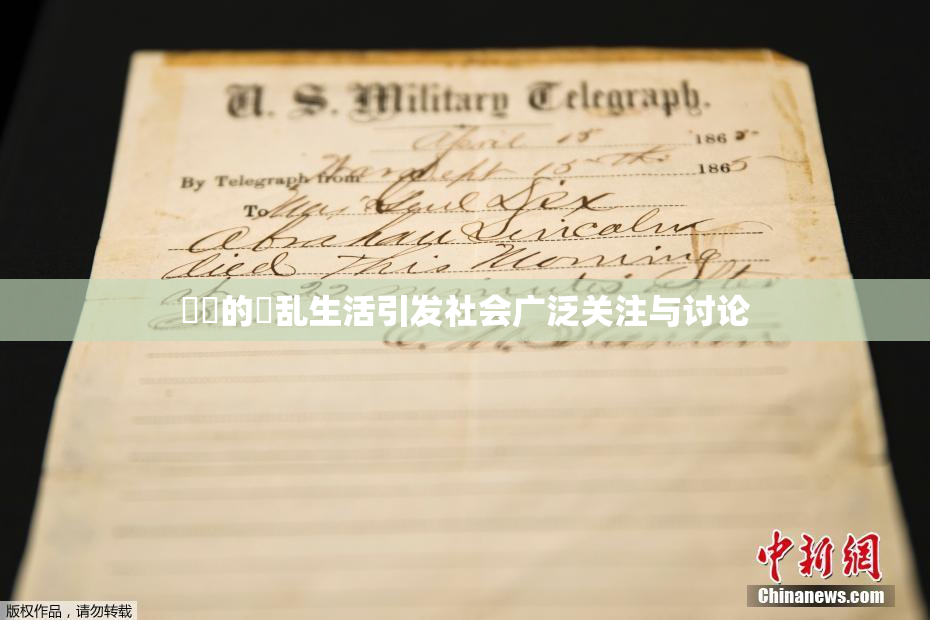 U. S. Military Telegraph.
April 15 1865
By Telegraph from War Dept 15th 1865
To Maj Genl Dix
Abraham Lincoln
died This Morning
at 22 minutes after
的乱生活引发社会广泛关注与讨论
E. M. Stanton
中新网
Chinanews.com
版权作品，请勿转载